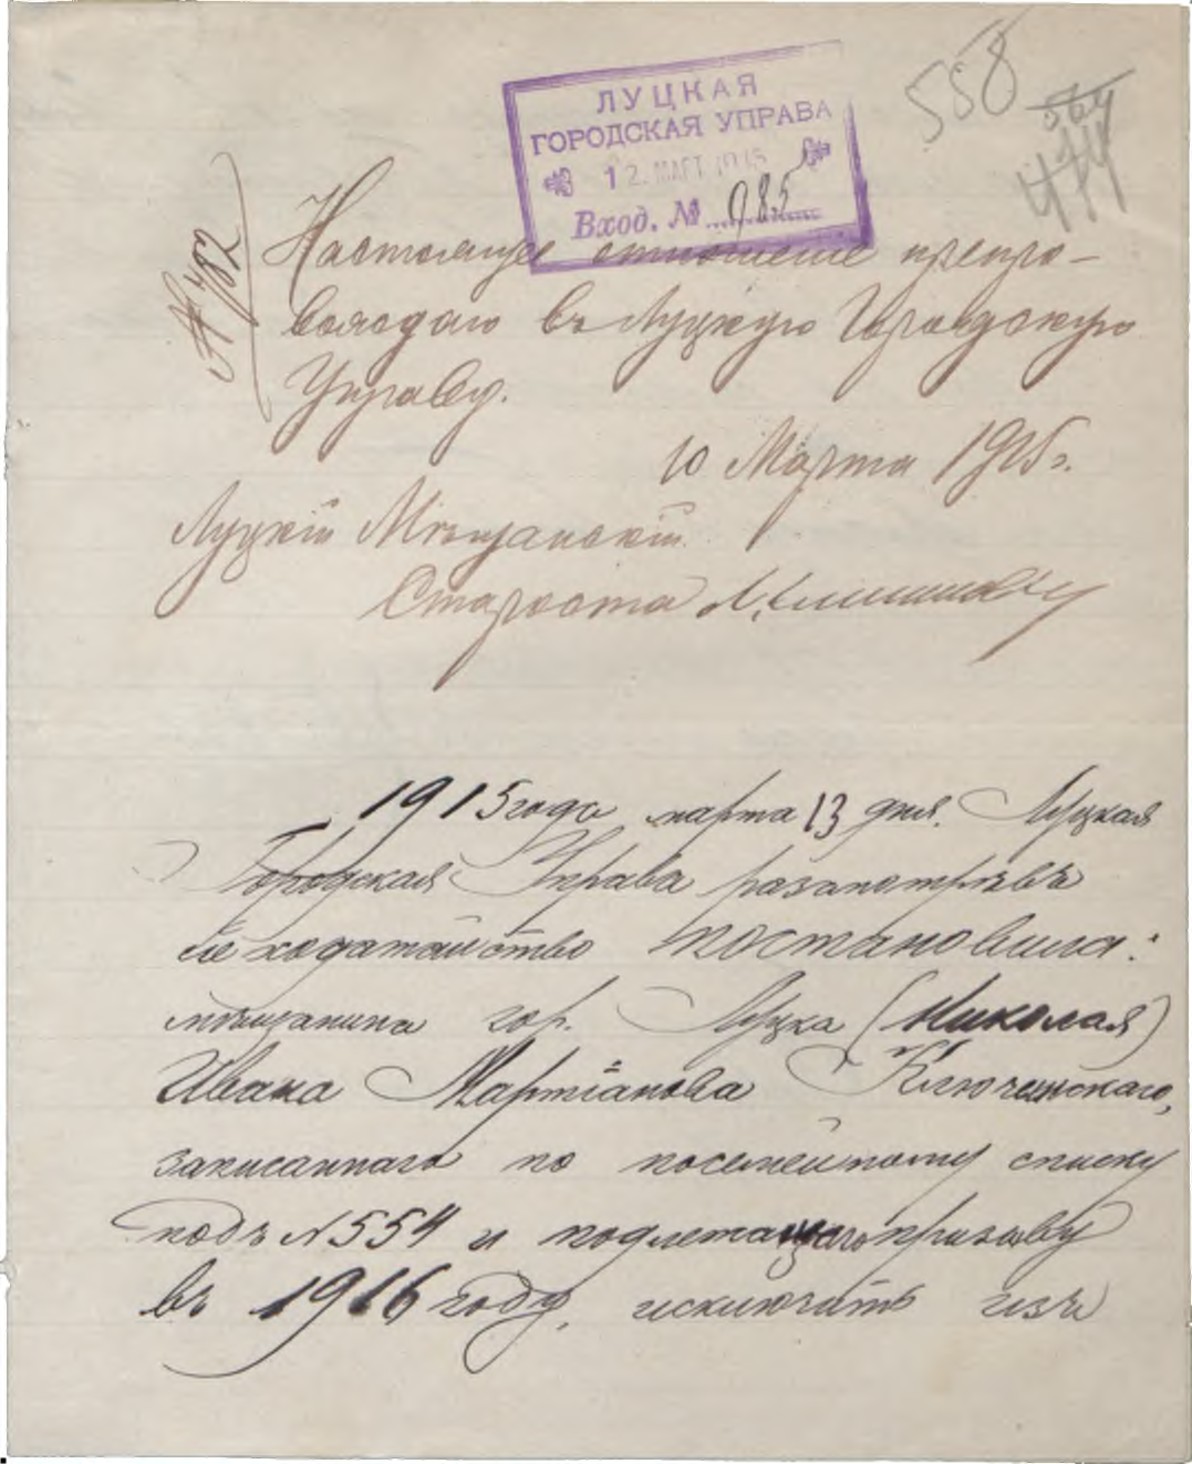 558
564
474
ЛУЦКАЯ
ГОРОДСКАЯ УПРАВА
12. МАРТ 1915
Вход. № 985
№ 482
Настоящее отношение препро-
вождаю въ Луцкую Городскую
Управу.
10 Марта 1915 г.
Луцкій Мѣщанскій
Староста
1915 года марта 13 дня. Луцкая
Городская Управа разсмотрѣвъ
сіе ходатайство постановила:
мѣщанина гор. Луцка (Николая)
Ивана Мартіанова Ключинскаго,
записаннаго по посемейному списку
подъ № 554 и подлежащаго призыву
въ 1916 году, исключить изъ